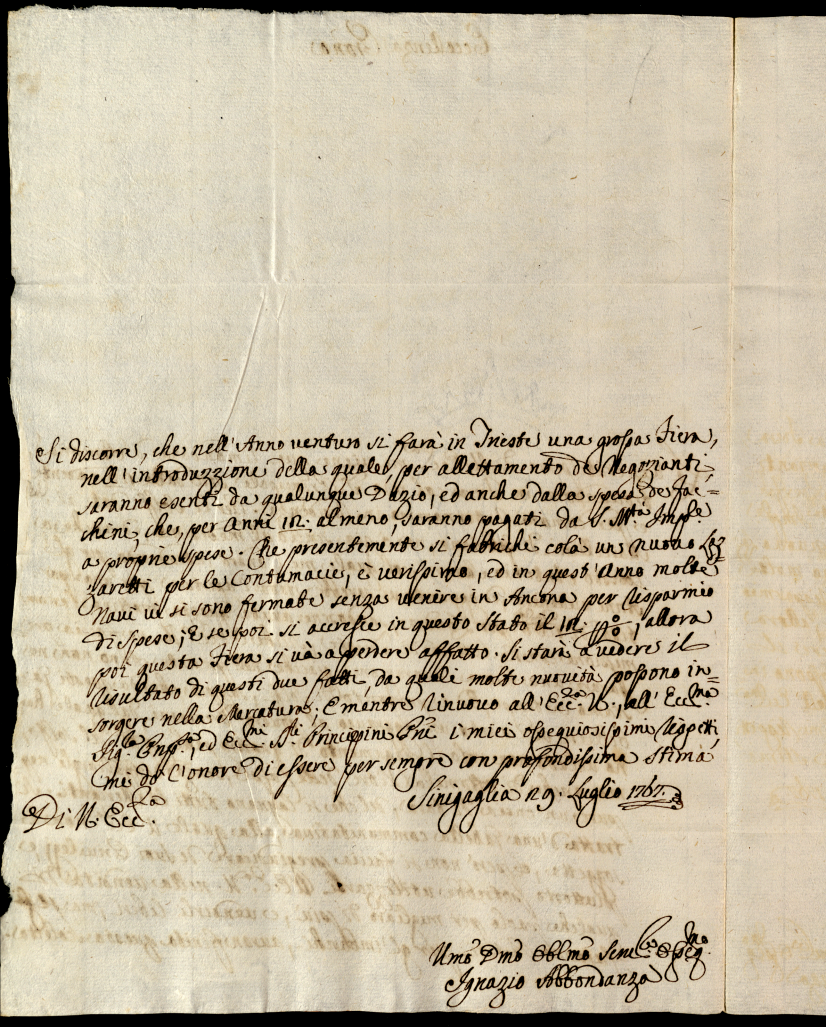 Si discorre, che nell'Anno venturo si farà in Trieste una grossa Fiera,
nell'introduzzione della quale, per allettamento de Negozianti,
saranno esenti da qualunque Dazio, ed anche dalla spesa de Fac=
chini, che, per Anni 10. almeno, saranno pagati da S. M.tà Imp.le
a proprie spese. Che presentemente si fabrichi colà un nuovo Laz
zaretti per le Contumacie, è verissimo, ed in quest'Anno molte
Navi vi si sono fermate senza venire in Ancona per risparmio
di spese; E se poi si accresce in questo Stato il 10. p%, allora
poi questa Fiera si và a perdere affatto. Si starà à vedere il
risultato di questi due fatti, da quali molte nuovità possono in=
sorgere nella Mercatura; E mentre rinuovo all'Ecc.za V., all'Ecc.ma
Sig.ra , ed Ecc.mi S.ri Principini P̃ñi i miei ossequiosissimi rispetti,
mi do l'onore di essere per sempre con profondissima stima
Di V. Ecc.za
Sinigaglia 29. Luglio 1767.
Umo Dmo Obblmo Serv.e Osseq.mo
Ignazio Abbondanza